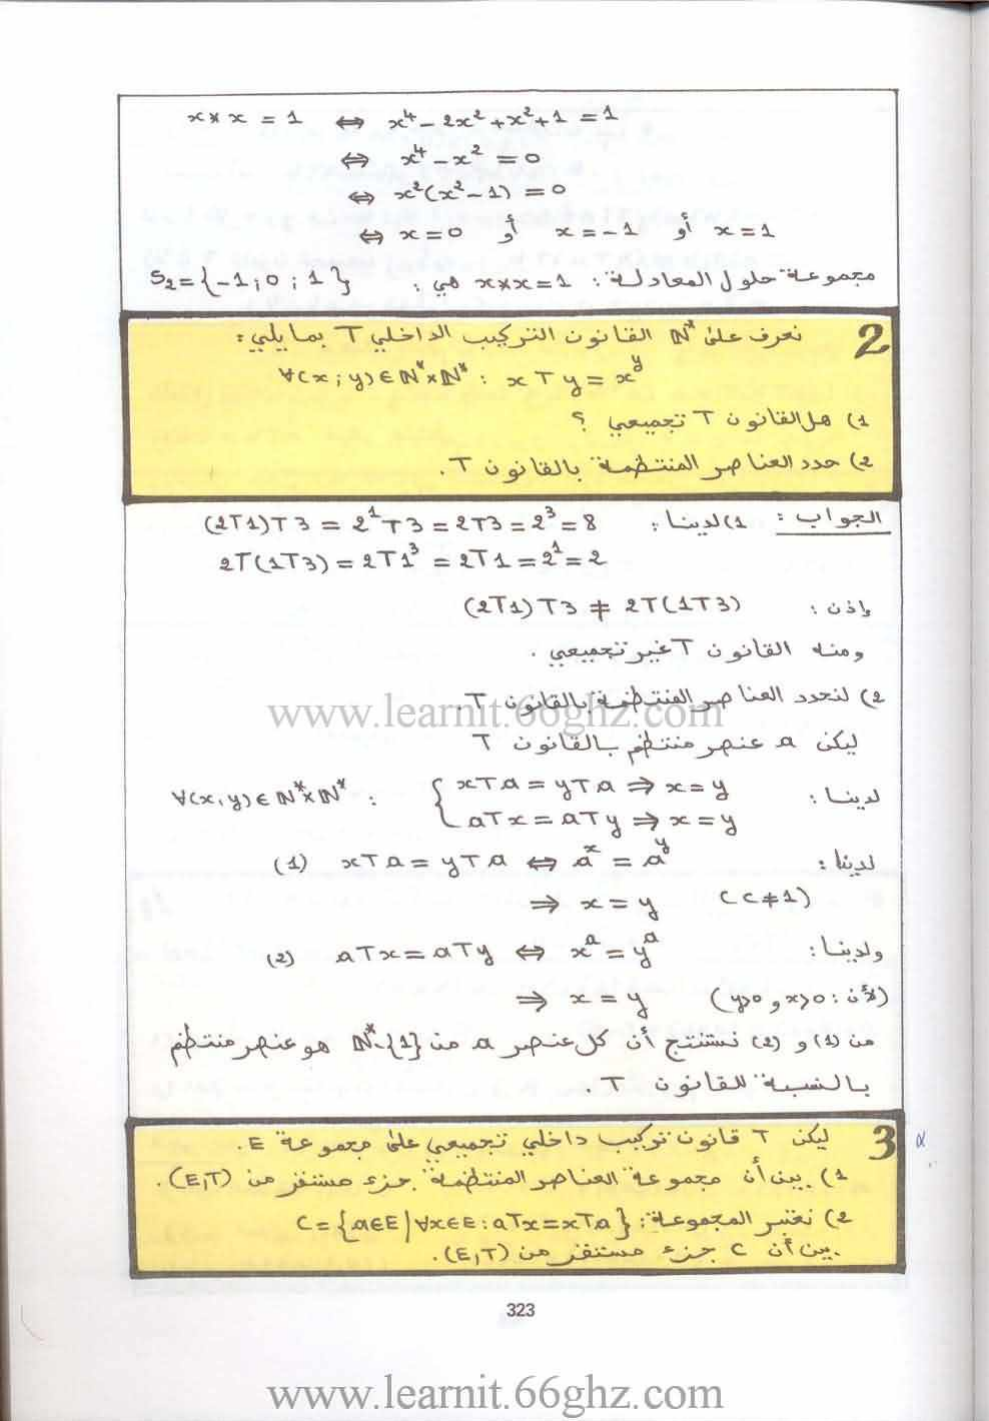 x*x = 1 ⇔ x⁴ - 2x² + x² + 1 = 1
⇔ x⁴ - x² = 0
⇔ x²(x² - 1) = 0
⇔ x = 0 أو x = -1 أو x = 1
مجموعة حلول المعادلة: x*x = 1 هي: S₂ = {-1; 0; 1}
2 نعرف على ℕ* القانون التركيب الداخلي T بما يلي:
∀(x; y) ∈ ℕ* × ℕ* : x T y = x^y
1) هل القانون T تجميعي ؟
2) حدد العناصر المنتظمة بالقانون T.
الجواب: 1) لدينا: (2T1)T3 = 2¹T3 = 2T3 = 2³ = 8
2T(1T3) = 2T1³ = 2T1 = 2¹ = 2
إذن: (2T1)T3 ≠ 2T(1T3)
ومنه القانون T غير تجميعي.
2) لنحدد العناصر المنتظمة بالقانون T.
www.learnit.66ghz.com
ليكن a عنصر منتظم بالقانون T
لدينا: ∀(x,y) ∈ ℕ* × ℕ* : { xTa = yTa ⇒ x = y
aTx = aTy ⇒ x = y
لدينا: (1) xTa = yTa ⇔ a^x = a^y
⇒ x = y (C ≠ 1)
ولدينا: (2) aTx = aTy ⇔ x^a = y^a
⇒ x = y (لأن: x>0 و y>0)
من (1) و (2) نستنتج أن كل عنصر a من ℕ*-{1} هو عنصر منتظم
بالنسبة للقانون T.
3 ليكن T قانون تركيب داخلي تجميعي على مجموعة E.
α
1) بين أن مجموعة العناصر المنتظمة جزء مستقر من (E,T).
2) نعتبر المجموعة: C = {a∈E / ∀x∈E : aTx = xTa}
بين أن C جزء مستقر من (E,T).
323
www.learnit.66ghz.com